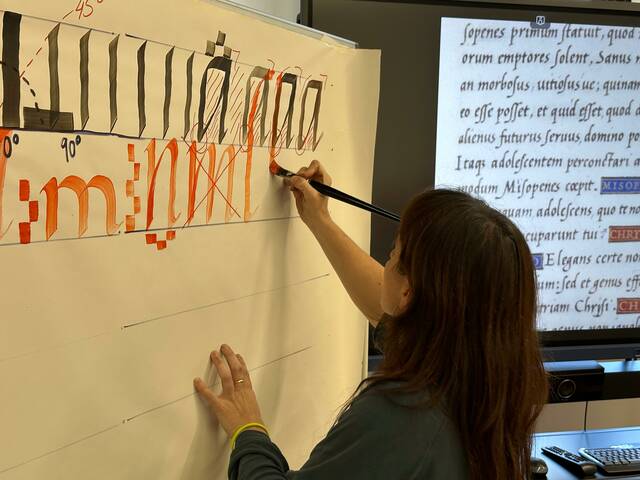 45°
90°
m
n
ſopenes primum ſtatuit, quod
orum emptores ſolent, Sanus
an morboſus, uitioſus ue; quinam
eo eſſe poſſet, et quid eſſet, quod
alienus futurus ſeruus, domino
Itaq; adoleſcentem
modum Miſopenes cœpit. MISOP
quam, adoleſcens, quo te
cuparunt tui? CHRY
Elegans certe
um: ſed et genus
triam Chryſi. CH